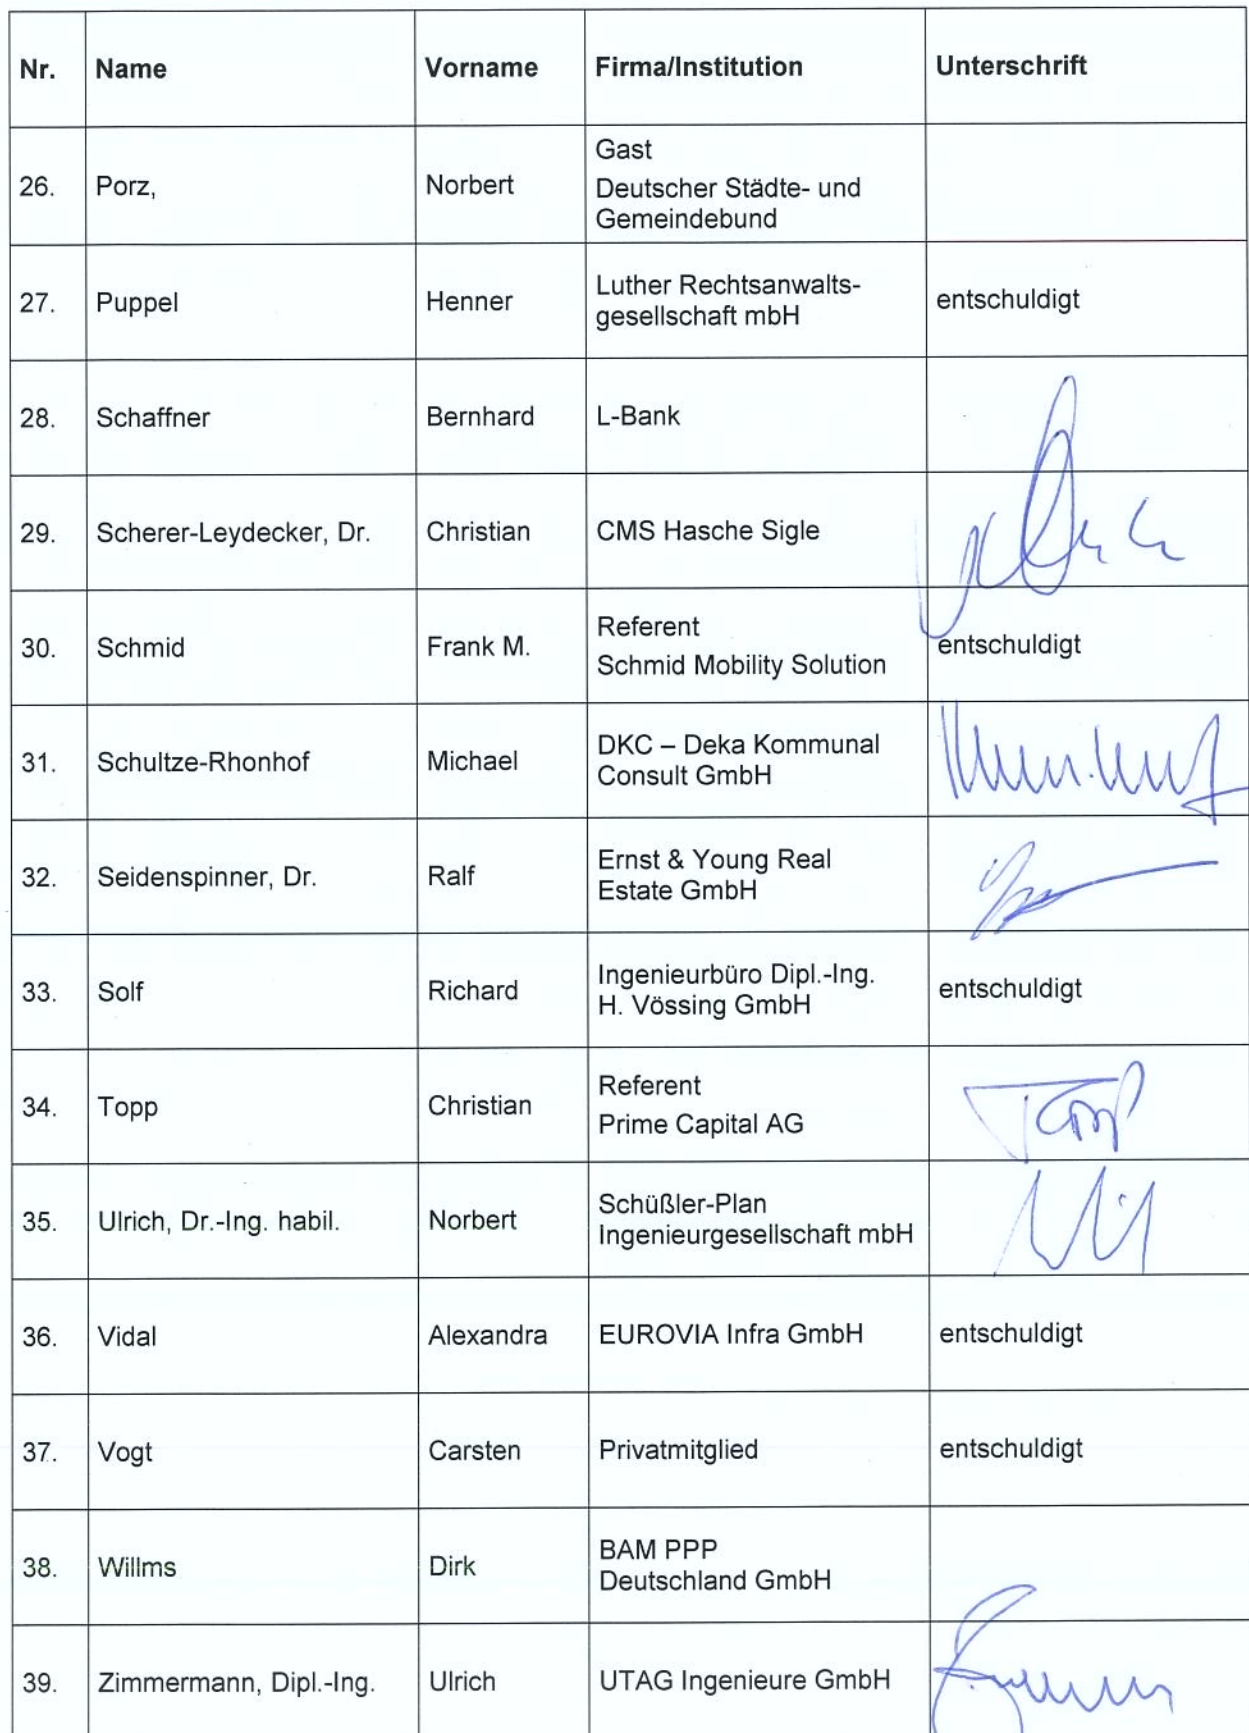 Nr. Name Vorname Firma/Institution Unterschrift
26. Porz, Norbert Gast
Deutscher Städte- und
Gemeindebund
27. Puppel Henner Luther Rechtsanwalts-
gesellschaft mbH entschuldigt
28. Schaffner Bernhard L-Bank
29. Scherer-Leydecker, Dr. Christian CMS Hasche Sigle
30. Schmid Frank M. Referent
Schmid Mobility Solution entschuldigt
31. Schultze-Rhonhof Michael DKC – Deka Kommunal
Consult GmbH
32. Seidenspinner, Dr. Ralf Ernst & Young Real
Estate GmbH
33. Solf Richard Ingenieurbüro Dipl.-Ing.
H. Vössing GmbH entschuldigt
34. Topp Christian Referent
Prime Capital AG Topp
35. Ulrich, Dr.-Ing. habil. Norbert Schüßler-Plan
Ingenieurgesellschaft mbH
36. Vidal Alexandra EUROVIA Infra GmbH entschuldigt
37. Vogt Carsten Privatmitglied entschuldigt
38. Willms Dirk BAM PPP
Deutschland GmbH
39. Zimmermann, Dipl.-Ing. Ulrich UTAG Ingenieure GmbH